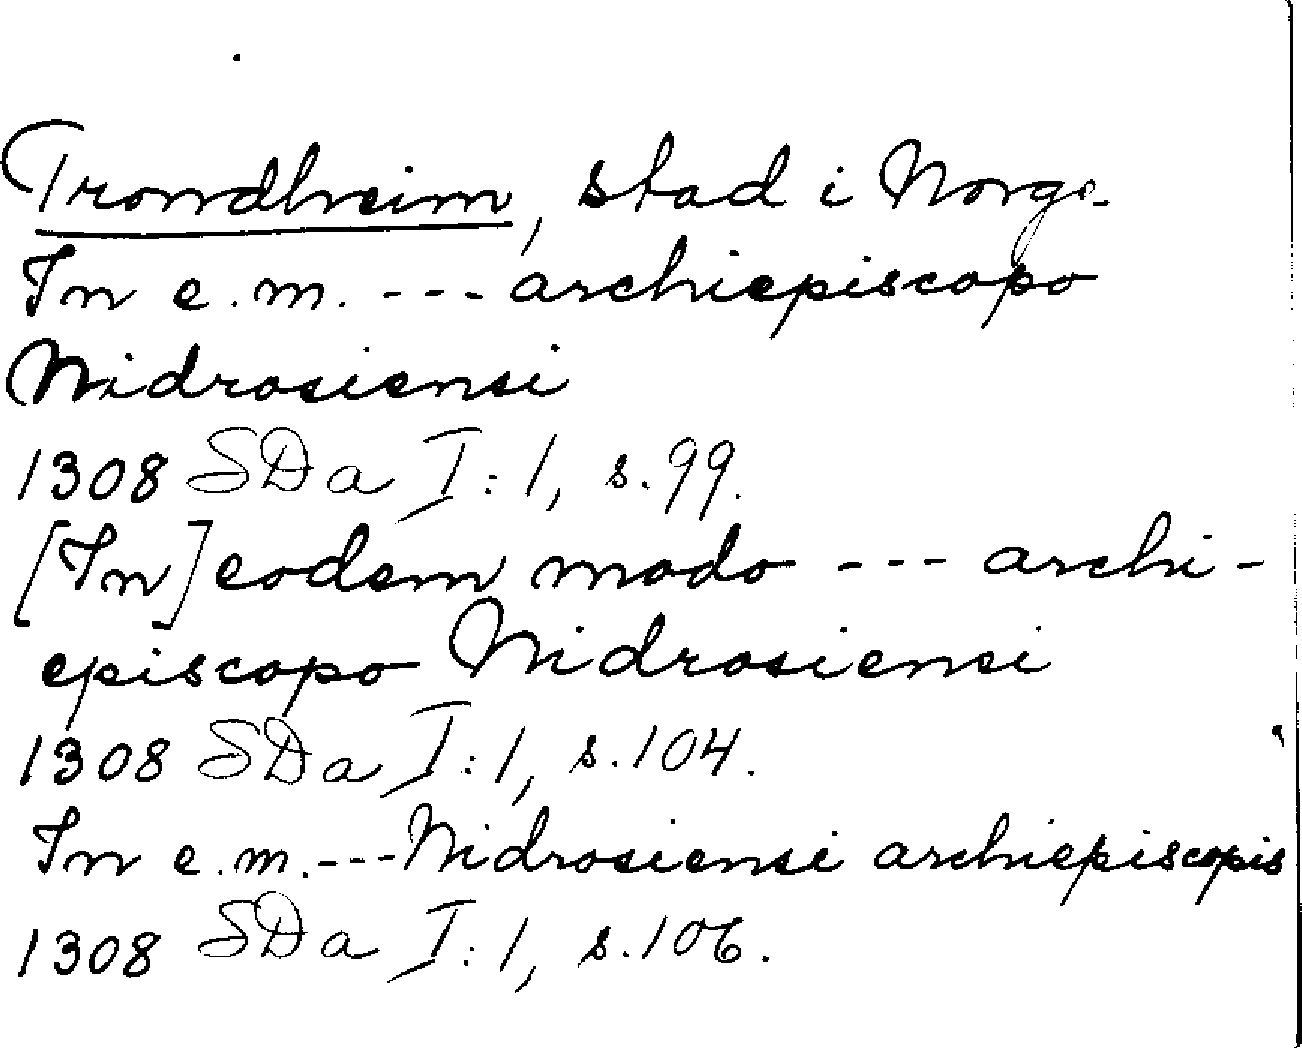 Trondheim, stad i Norge.
In e.m. --- archiepiscopo
Nidrosiensi
1308 SDa I:1, s.99.
[In] eodem modo --- archi-
episcopo Nidrosiensi
1308 SDa I:1, s.104.
In e.m. --- Nidrosiensi archiepiscopis
1308 SDa I:1, s.106.